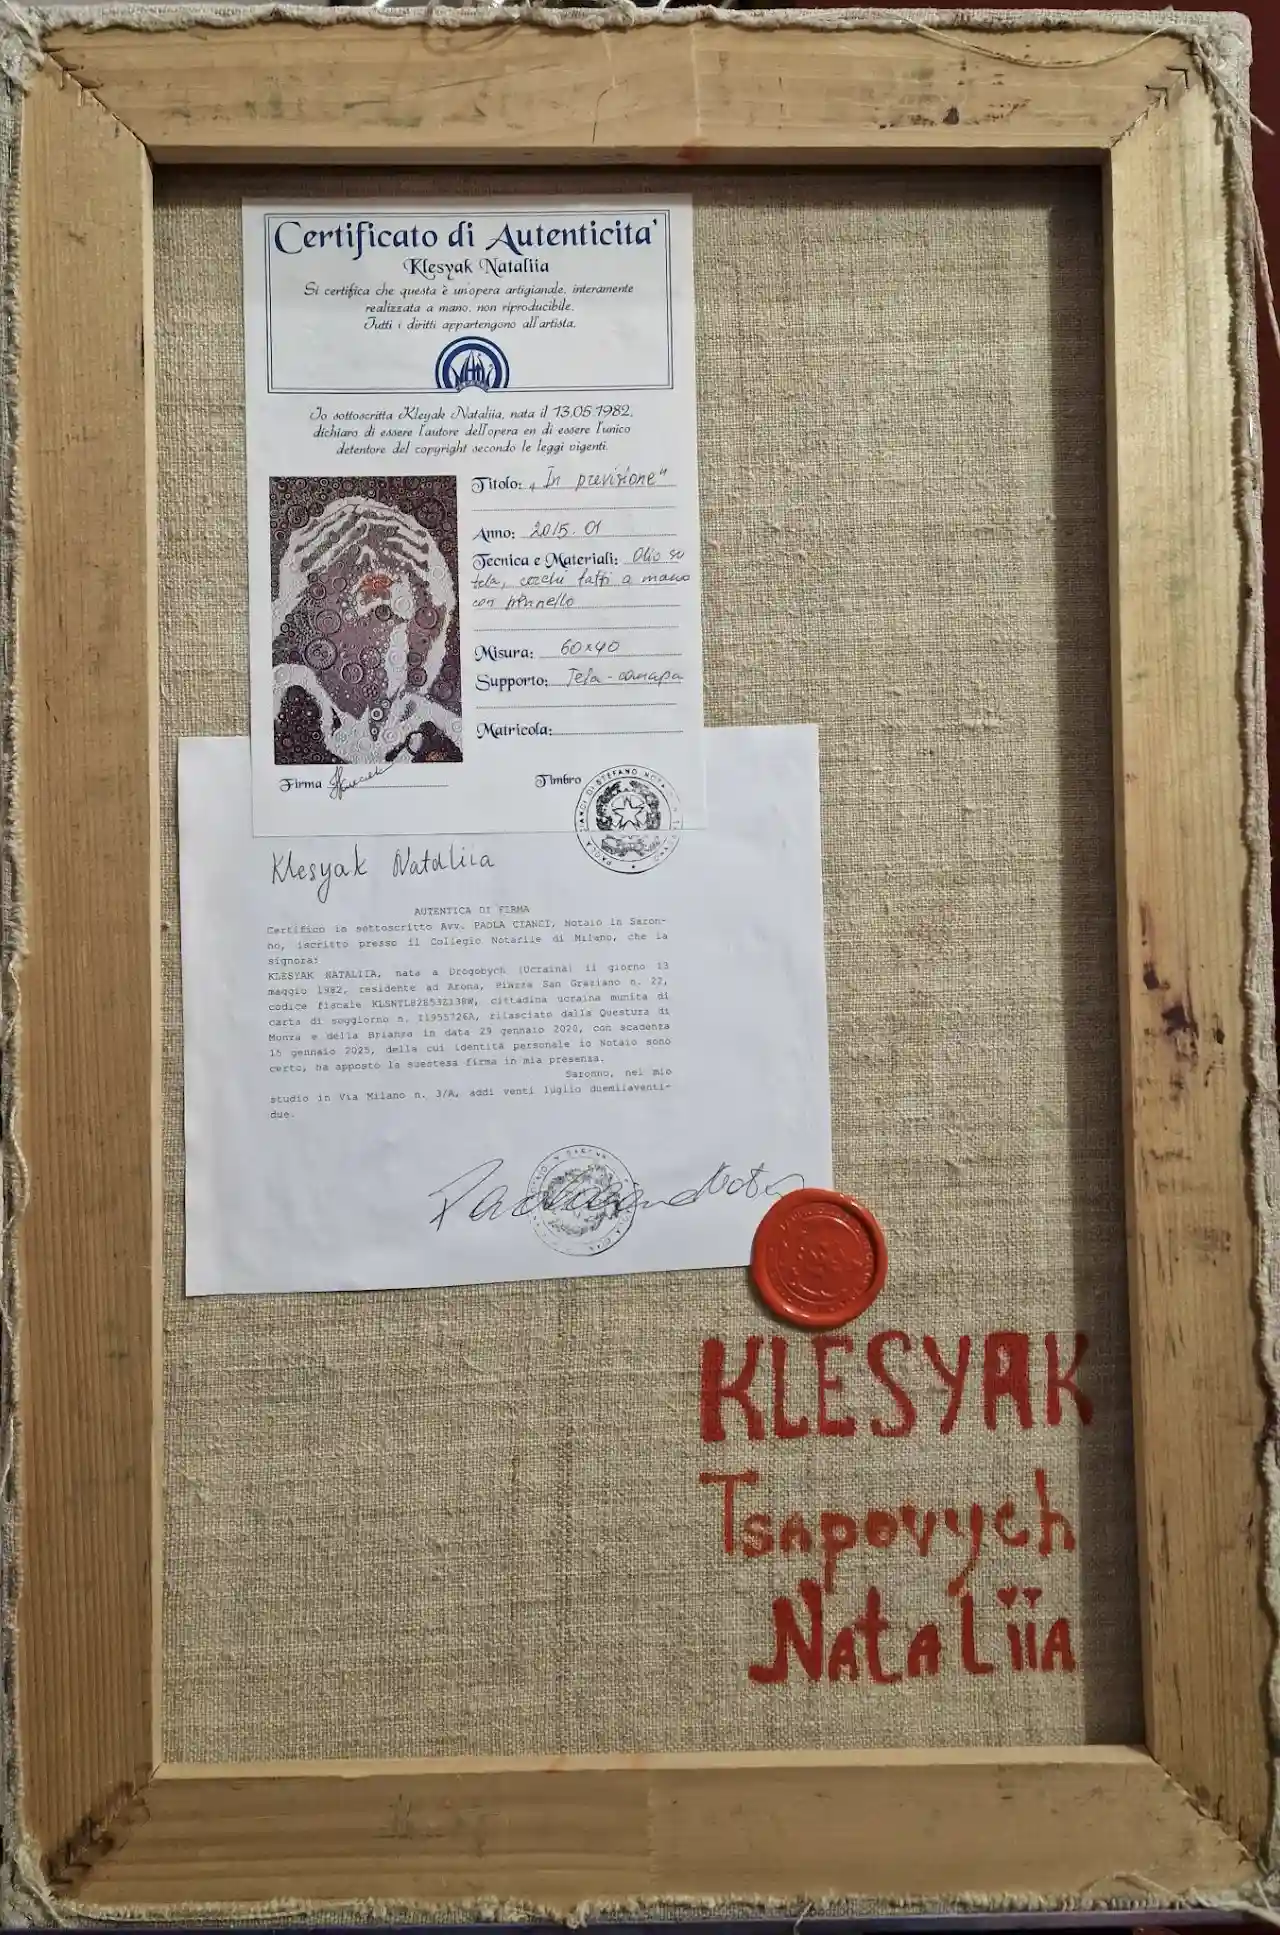 Certificato di Autenticita'
Klesyak Nataliia
Si certifica che questa è un'opera artigianale, interamente
realizzata a mano, non riproducibile.
Tutti i diritti appartengono all'artista.
Io sottoscritta Klesyak Nataliia, nata il 13.05.1982,
dichiaro di essere l'autore dell'opera en di essere l'unico
detentore del copyright secondo le leggi vigenti.
Titolo: „In previsione"
Anno: 2015. 01
Tecnica e Materiali: Olio su
tela, cerchi fatti a mano
con pennello
Misura: 60x40
Supporto: Tela - canapa
Matricola:
Firma
Timbro
Klesyak Nataliia
AUTENTICA DI FIRMA
Certifico io sottoscritto Avv. PAOLA CIANCI, Notaio in Saron-
no, iscritto presso il Collegio Notarile di Milano, che la
signora:
KLESYAK NATALIIA, nata a Drogobych (Ucraina) il giorno 13
maggio 1982, residente ad Arona, Piazza San Graziano n. 22,
codice fiscale cittadina ucraina munita di
carta di soggiorno n. rilasciato dalla Questura di
Monza e della Brianza in data 29 gennaio 2020, con scadenza
15 gennaio 2025, della cui identità personale io Notaio sono
certo, ha apposto la suestesa firma in mia presenza.
Saronno, nel mio
studio in Via Milano n. 3/A, addì venti luglio duemilaventi-
due.
KLESYAK
Tsapovych
Nataliia